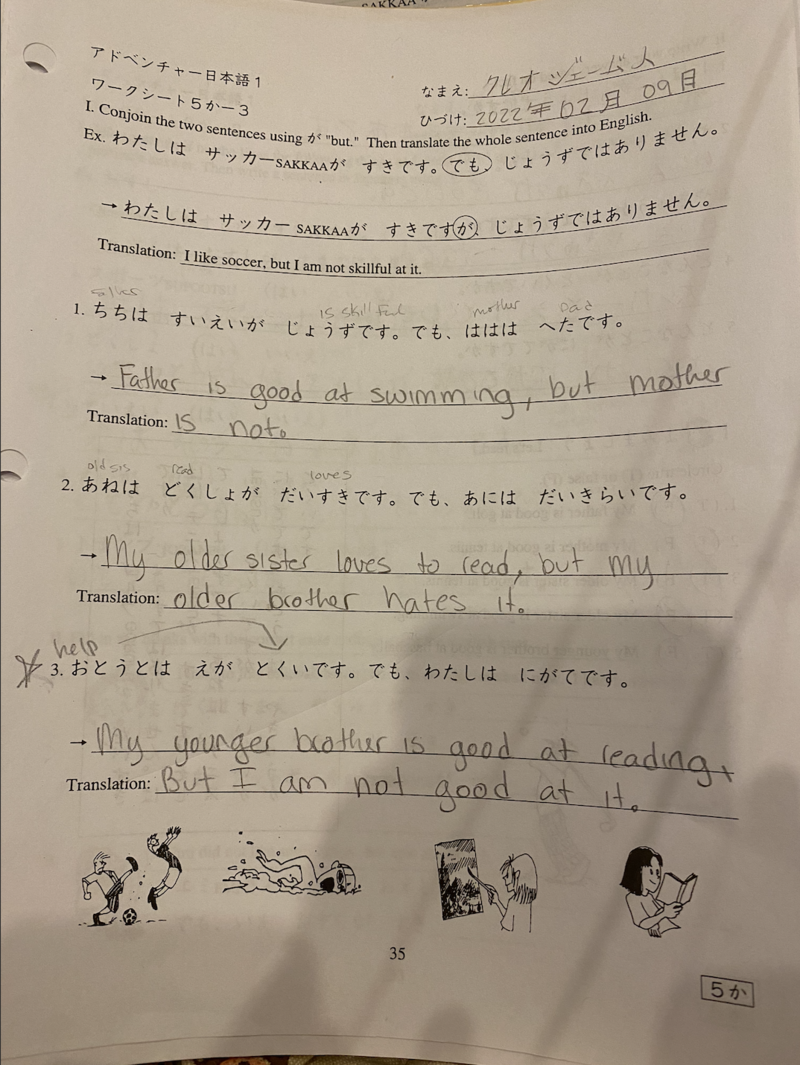 SAKKAA
アドベンチャー日本語 1
ワークシート5か—3
なまえ: クレオ ジェームス
ひづけ: 2022年02月09日
I. Conjoin the two sentences using が "but." Then translate the whole sentence into English.
Ex. わたしは サッカーSAKKAAが すきです。でも、じょうずではありません。
→ わたしは サッカー SAKKAAが すきですが、じょうずではありません。
Translation: I like soccer, but I am not skillful at it.
is skillful mother Dad
1. ちちは すいえいが じょうずです。でも、ははは へたです。
→ Father is good at swimming, but mother
Translation: is not。
old sis read loves
2. あねは どくしょが だいすきです。でも、あには だいきらいです。
→ My older sister loves to read, but my
Translation: older brother hates it。
help
3. おとうとは えが とくいです。でも、わたしは にがてです。
→ My younger brother is good at reading,
Translation: But I am not good at it。
35
5か